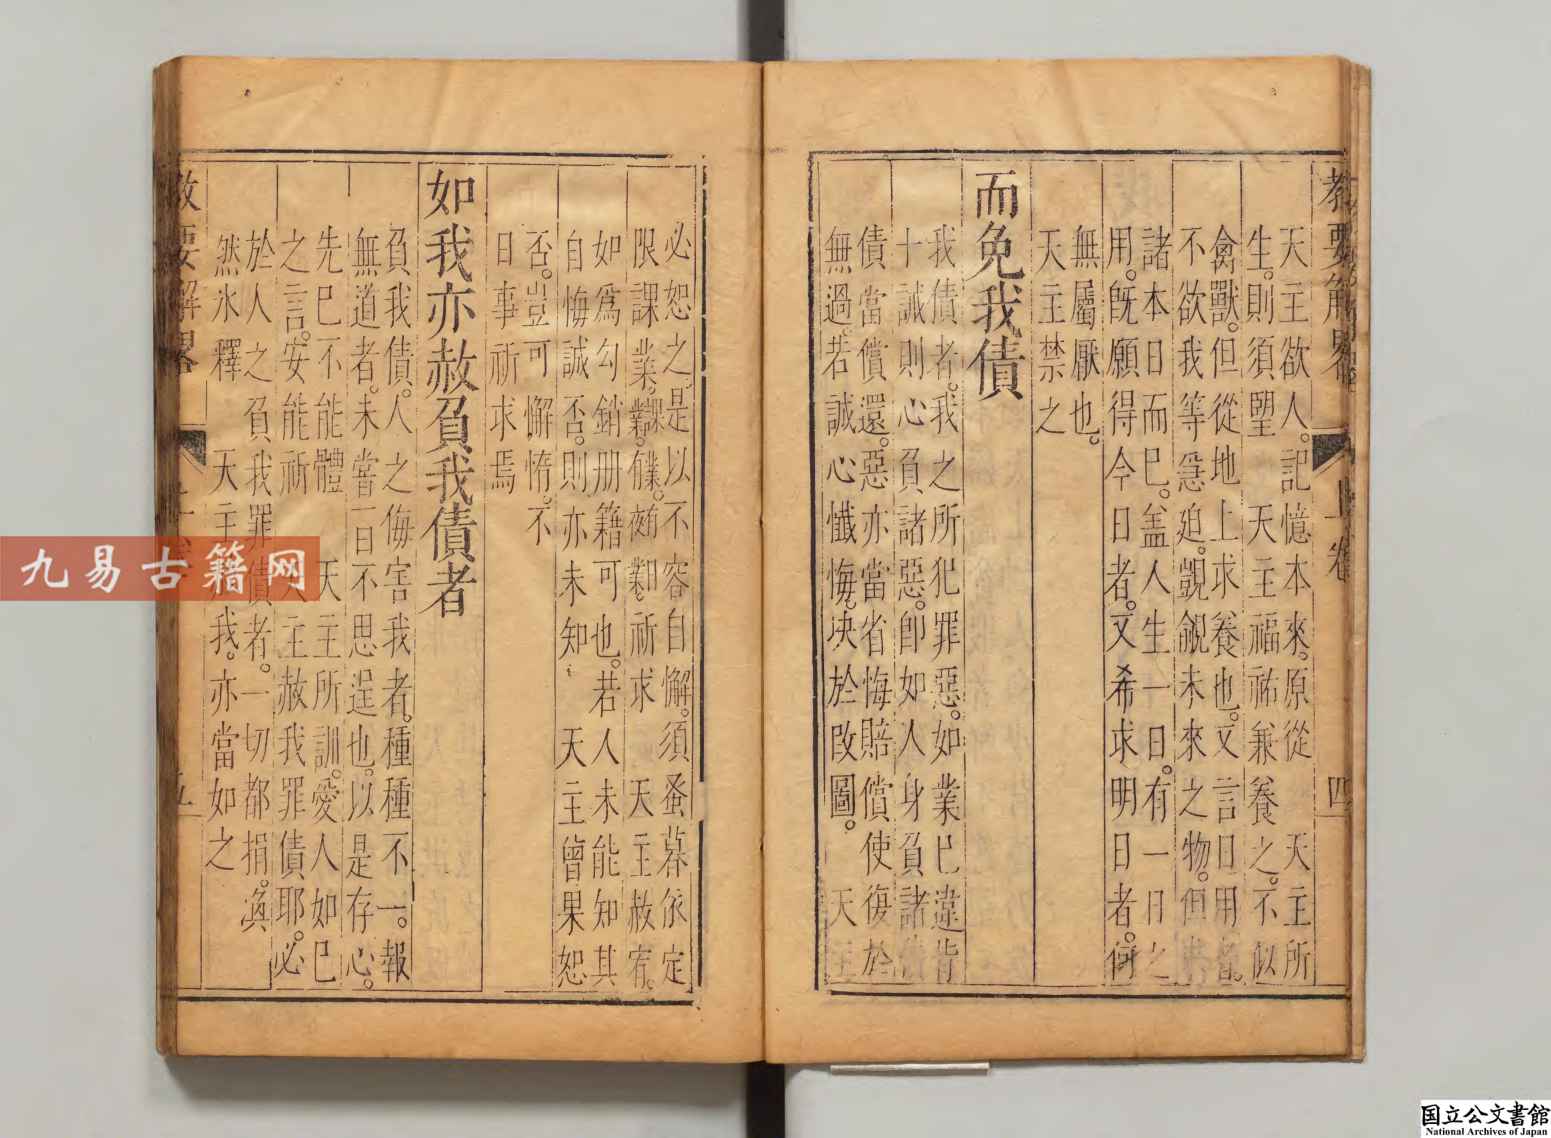 教要解畧 上卷 四
天主欲人。記憶本來。原從 天主所
生。則須朢 天主福祐兼養之。不似
禽獸。但從地上求養也。又言日用者。
不欲我等急迫。覬覦未來之物。但
諸本日而已。盖人生一日。有一日之
用。旣願得今日者。又希求明日者。
無屬厭也。
天主禁之
而免我債
我債者。我之所犯罪惡。如業已違背
十誡則心負諸惡。卽如人身負諸債
債當償還。惡亦當省悔賠償使復於
無過。若誠心懺悔。决於改圖。 天主
必恕之。是以不容自懈。須蚤暮依定
限課業。祈求 天主赦宥。
如爲勾銷册籍可也。若人未能知其
自悔誠否。則亦未知 天主曾果恕
否。豈可懈惰。不
日事祈求焉
如我亦赦負我債者
負我債。人之侮害我者。種種不一。報
無道者。未嘗一日不思逞也。以是存心。
先已不能體 天主所訓。愛人如己
之言。安能祈 天主赦我罪債耶。必
於人之負我罪債者。一切都捐。眞
然氷釋 天主我。亦當如之
教要解畧 五
九易古籍网
国立公文書館
National Archives of Japan